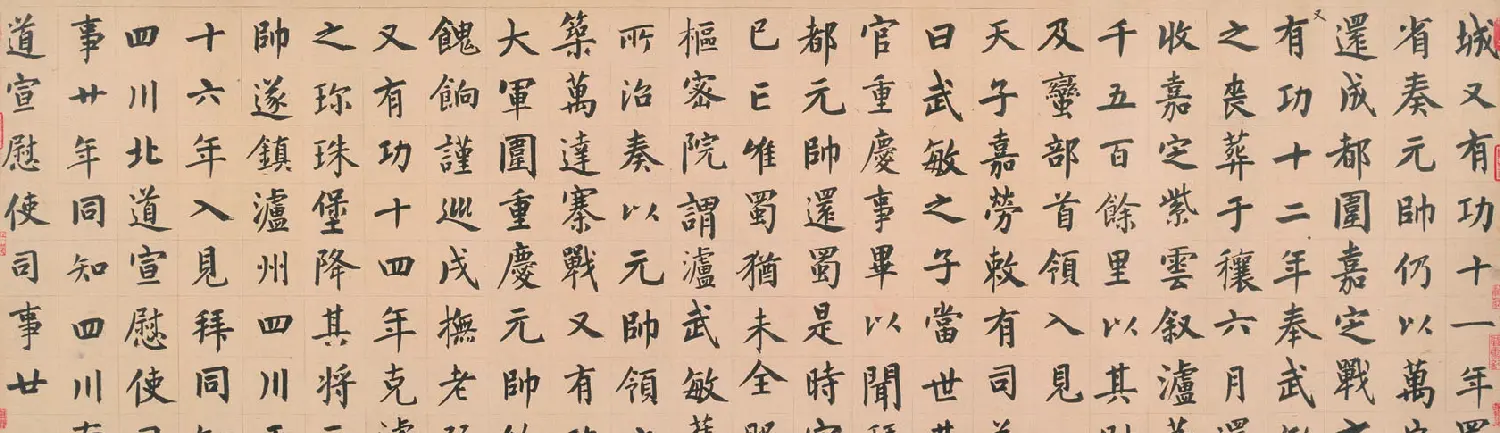 城又有功十一年
省奏元帥仍以萬
還成都圍嘉定戰
有功十二年奉武
又
之喪葬于穰六月
收嘉定紫雲敘瀘
千五百餘里以其
及蠻部首領入見
天子嘉勞敕有司
曰武敏之子當世
官重慶事畢以聞
都元帥還蜀是時
已亡唯蜀猶未全
樞密院謂瀘武敏
所治奏以元帥領
築萬達寨戰又有
大軍圍重慶元帥
餽餉謹巡戍撫老
又有功十四年克
之珎珠堡降其將
帥遂鎮瀘州四川
十六年入見拜同
四川北道宣慰使
事廿年同知四川
道宣慰使司事廿